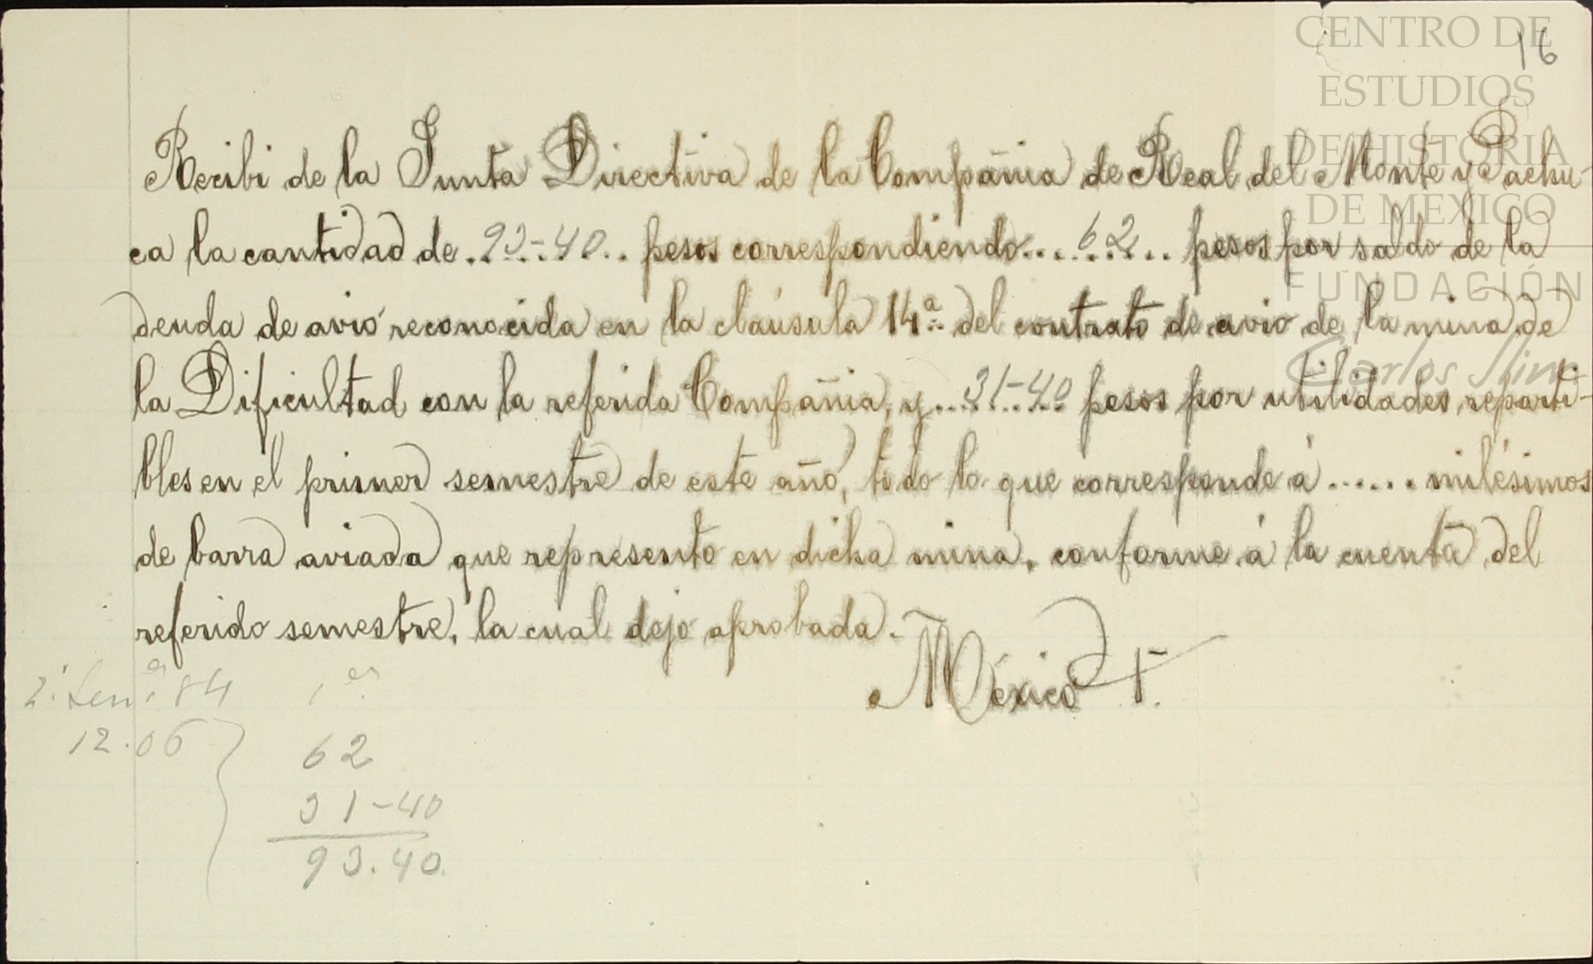 CENTRO DE
ESTUDIOS
DE HISTORIA
DE MEXICO
FUNDACIÓN
Carlos Slim
16
Recibi de la Junta Directiva de la Compañia de Real del Monte y Pachu-
ca la cantidad de..93-40.. pesos correspondiendo....62.... pesos por saldo de la
deuda de avio reconocida en la cláusula 14ª del contrato de avio de la mina de
la Dificultad con la referida Compañia, y...31-40 pesos por utilidades reparti-
bles en el primer semestre de este año, todo lo que corresponde á...... milésimos
de barra aviada que represento en dicha mina, conforme á la cuenta del
referido semestre, la cual dejo aprobada.
México
2º Sem. 84 1er
12.06
62
31-40
93.40.